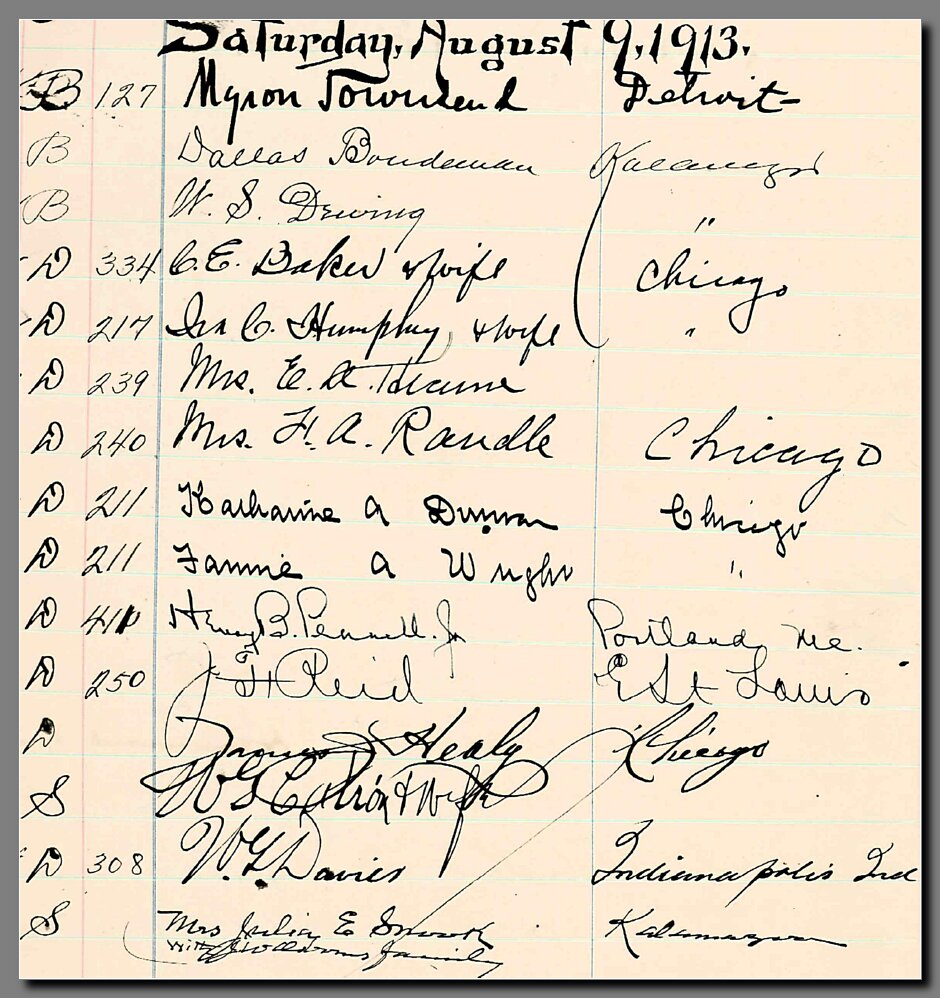 Saturday, August 9, 1913.
B 127 Myron Townsend Detroit
B Dallas Boudeman Kalamazoo
B W. S. Dewing "
D 334 C. E. Baker & wife Chicago
D 217 Ira C. Humphrey & wife "
D 239 Mrs. E. A.
D 240 Mrs. F. A. Randle Chicago
D 211 Katharine A Chicago
D 211 Fannie A Wright "
D Henry B. Pennell. Jr Portland, Me.
D 250 J. H. Reid E St Louis
D James J Healy Chicago
S W & Wife
D 308 W. G. Davies Indianapolis Ind
S Mrs Julia E Kalamazoo
with Williams family